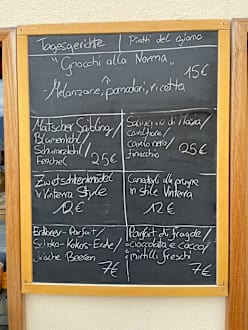 Tagesgerichte
Piatti del giorno
"Gnocchi alla Norma"
15€
Melanzane, pomodori, ricotta
Matscher Saibling/
Blumenkohl/
Schwarzkohl/
Fenchel 25€
Salmerino di Mazia/
cavolfiore/
cavolo nero/
finocchio 25€
Zwetschkenknödel
Vinterra Style
12€
Canederli alle prugne
in stile Vinterra
12€
Erdbeer-Parfait/
Schoko-Kokos-Erde/
frische Beeren
7€
Parfait di fragole/
cioccolata e cocco/
mirtilli freschi
7€